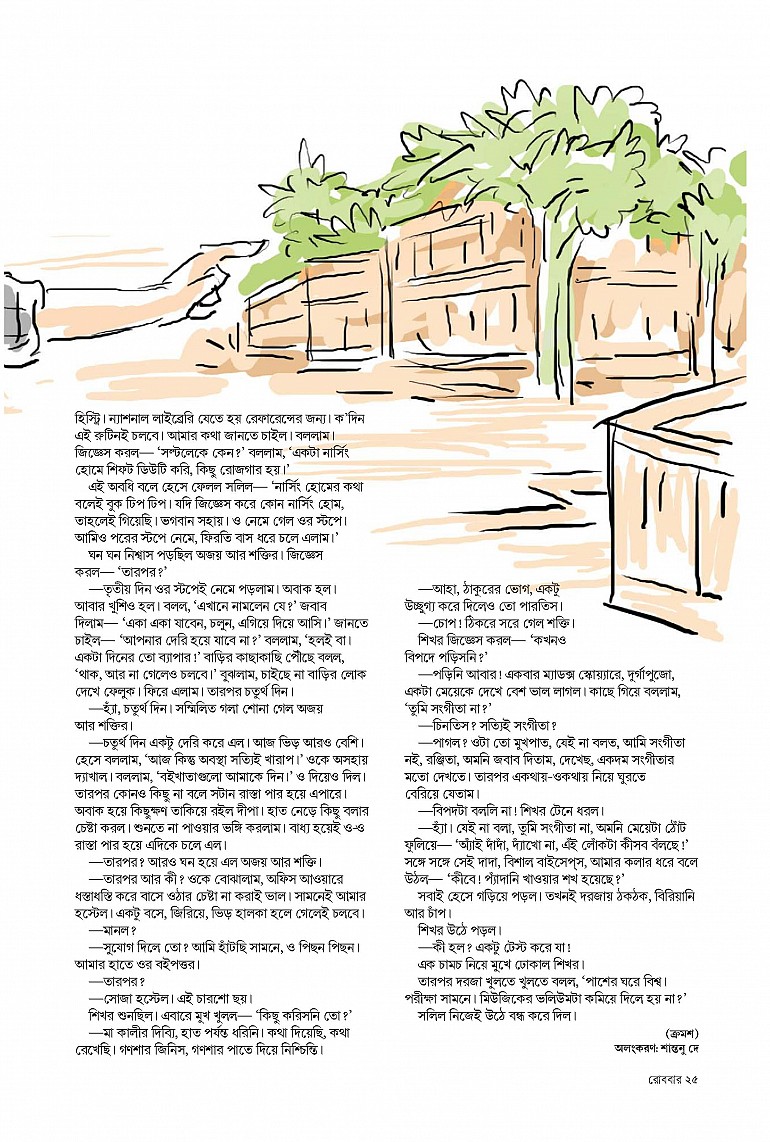 হিস্ট্রি। ন্যাশনাল লাইব্রেরি যেতে হয় রেফারেন্সের জন্য। ক'দিন
এই রুটিনই চলবে। আমার কথা জানতে চাইল। বললাম।
জিজ্ঞেস করল— 'সল্টলেকে কেন?' বললাম, 'একটা নার্সিং
হোমে শিফট ডিউটি করি, কিছু রোজগার হয়।'
এই অবধি বলে হেসে ফেলল সলিল— 'নার্সিং হোমের কথা
বলেই বুক ঢিপ ঢিপ। যদি জিজ্ঞেস করে কোন নার্সিং হোম,
তাহলেই গিয়েছি। ভগবান সহায়। ও নেমে গেল ওর স্টপে।
আমিও পরের স্টপে নেমে, ফিরতি বাস ধরে চলে এলাম।'
ঘন ঘন নিশ্বাস পড়ছিল অজয় আর শক্তির। জিজ্ঞেস
করল— 'তারপর?'
—তৃতীয় দিন ওর স্টপেই নেমে পড়লাম। অবাক হল।
আবার খুশিও হল। বলল, 'এখানে নামলেন যে?' জবাব
দিলাম— 'একা একা যাবেন, চলুন, এগিয়ে দিয়ে আসি।' জানতে
চাইল— 'আপনার দেরি হয়ে যাবে না?' বললাম, 'হলই বা।
একটা দিনের তো ব্যাপার!' বাড়ির কাছাকাছি পৌঁছে বলল,
'থাক, আর না গেলেও চলবে।' বুঝলাম, চাইছে না বাড়ির লোক
দেখে ফেলুক। ফিরে এলাম। তারপর চতুর্থ দিন।
—হ্যাঁ, চতুর্থ দিন। সম্মিলিত গলা শোনা গেল অজয়
আর শক্তির।
—চতুর্থ দিন একটু দেরি করে এল। আজ ভিড় আরও বেশি।
হেসে বললাম, 'আজ কিন্তু অবস্থা সত্যিই খারাপ।' ওকে অসহায়
দ্যাখাল। বললাম, 'বইখাতাগুলো আমাকে দিন।' ও দিয়েও দিল।
তারপর কোনও কিছু না বলে সটান রাস্তা পার হয়ে এপারে।
অবাক হয়ে কিছুক্ষণ তাকিয়ে রইল দীপা। হাত নেড়ে কিছু বলার
চেষ্টা করল। শুনতে না পাওয়ার ভঙ্গি করলাম। বাধ্য হয়েই ও-ও
রাস্তা পার হয়ে এদিকে চলে এল।
—তারপর? আরও ঘন হয়ে এল অজয় আর শক্তি।
—তারপর আর কী? ওকে বোঝালাম, অফিস আওয়ারে
ধস্তাধস্তি করে বাসে ওঠার চেষ্টা না করাই ভাল। সামনেই আমার
হস্টেল। একটু বসে, জিরিয়ে, ভিড় হালকা হলে গেলেই চলবে।
—মানল?
—সুযোগ দিলে তো? আমি হাঁটছি সামনে, ও পিছন পিছন।
আমার হাতে ওর বইপত্তর।
—তারপর?
—সোজা হস্টেল। এই চারশো ছয়।
শিখর শুনছিল। এবারে মুখ খুলল— 'কিছু করিসনি তো?'
—মা কালীর দিব্যি, হাত পর্যন্ত ধরিনি। কথা দিয়েছি, কথা
রেখেছি। গণশার জিনিস, গণশার পাতে দিয়ে নিশ্চিন্তি।
—আহা, ঠাকুরের ভোগ, একটু
উচ্ছুগ্য করে দিলেও তো পারতিস।
—চোপ! ঠিকরে সরে গেল শক্তি।
শিখর জিজ্ঞেস করল— 'কখনও
বিপদে পড়িসনি?'
—পড়িনি আবার! একবার ম্যাডক্স স্কোয়্যারে, দুর্গাপুজো,
একটা মেয়েকে দেখে বেশ ভাল লাগল। কাছে গিয়ে বললাম,
'তুমি সংগীতা না?'
—চিনতিস? সত্যিই সংগীতা?
—পাগল? ওটা তো মুখপাত, যেই না বলত, আমি সংগীতা
নই, রঞ্জিতা, অমনি জবাব দিতাম, দেখেছ, একদম সংগীতার
মতো দেখতে। তারপর একথায়-ওকথায় নিয়ে ঘুরতে
বেরিয়ে যেতাম।
—বিপদটা বললি না! শিখর টেনে ধরল।
—হ্যাঁ। যেই না বলা, তুমি সংগীতা না, অমনি মেয়েটা ঠোঁট
ফুলিয়ে— 'অ্যাঁই দাঁদাঁ, দ্যাঁখো না, এঁই লোঁকটা কীসব বঁলছে!'
সঙ্গে সঙ্গে সেই দাদা, বিশাল বাইসেপ্‌স, আমার কলার ধরে বলে
উঠল— 'কীবে! প্যাঁদানি খাওয়ার শখ হয়েছে?'
সবাই হেসে গড়িয়ে পড়ল। তখনই দরজায় ঠকঠক, বিরিয়ানি
আর চাঁপ।
শিখর উঠে পড়ল।
—কী হল? একটু টেস্ট করে যা!
এক চামচ নিয়ে মুখে ঢোকাল শিখর।
তারপর দরজা খুলতে খুলতে বলল, 'পাশের ঘরে বিশ্ব।
পরীক্ষা সামনে। মিউজিকের ভলিউমটা কমিয়ে দিলে হয় না?'
সলিল নিজেই উঠে বন্ধ করে দিল।
(ক্রমশ)
অলংকরণ: শান্তনু দে
রোববার ২৫